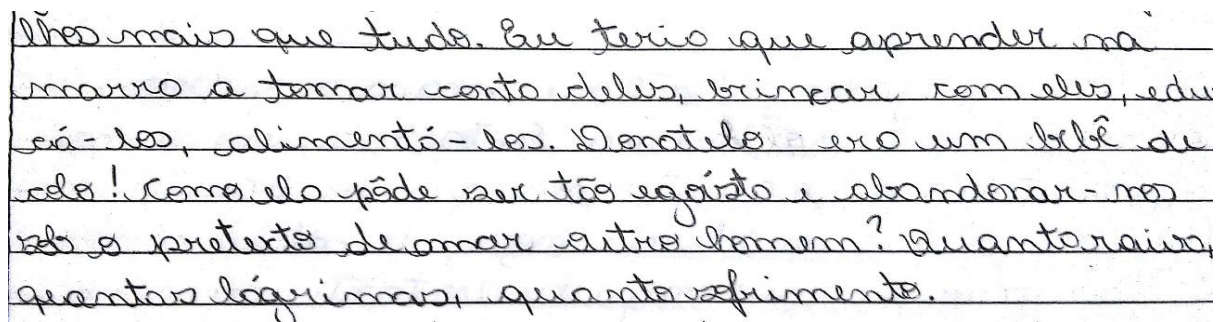 lhos mais que tudo. Eu teria que aprender na
marra a tomar conta deles, brincar com eles, edu
cá-los, alimentá-los. Donatelo era um bebê de
colo! Como ela pôde ser tão egoísta e abandonar-nos
sob o pretexto de amar outro homem? Quanta raiva,
quantas lágrimas, quanto sofrimento.